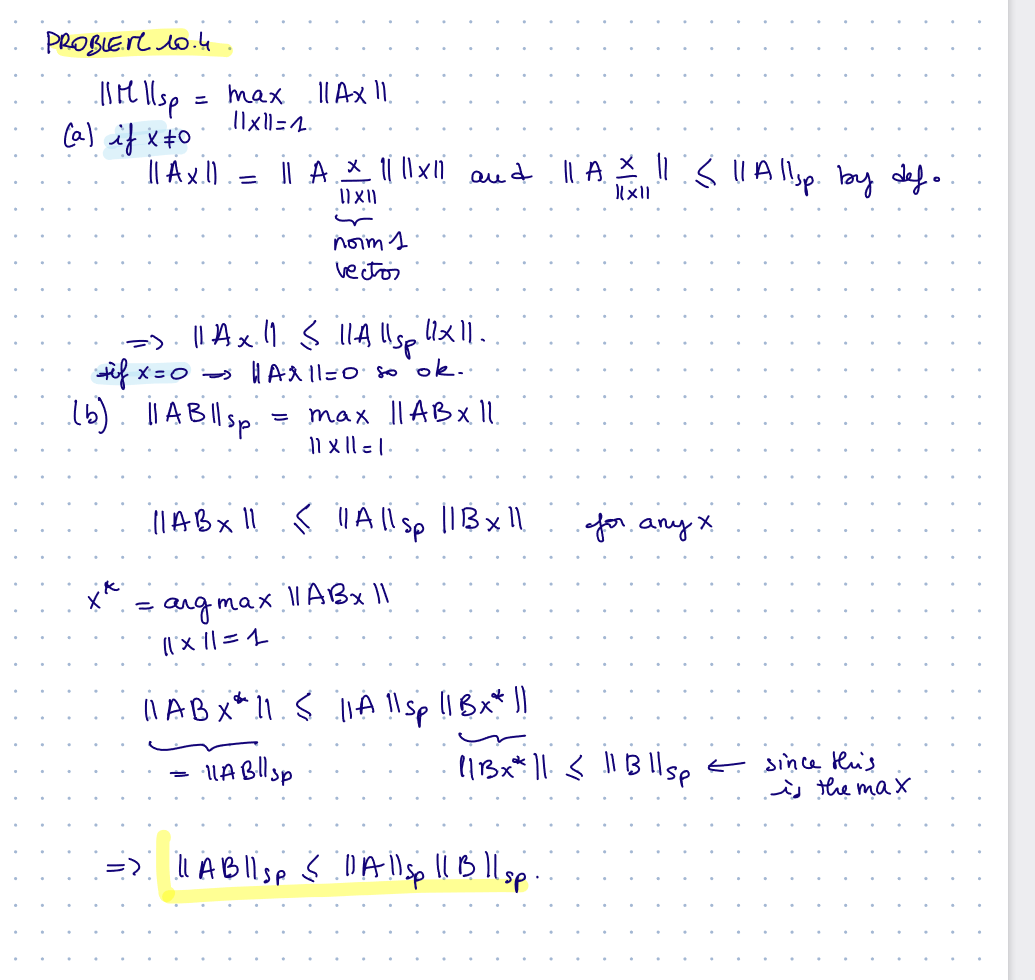 PROBLEM 10.4
||M||sp = max ||Ax||
||x||=1
(a) if x≠0
||Ax|| = || A x/||x|| || ||x|| and || A x/||x|| || ≤ ||A||sp by def.
norm 1
vector
=> ||Ax|| ≤ ||A||sp ||x||.
if x=0 → ||Ax||=0 so ok.
(b) ||AB||sp = max ||ABx||
||x||=1
||ABx|| ≤ ||A||sp ||Bx|| for any x
x* = argmax ||ABx||
||x||=1
||ABx*|| ≤ ||A||sp ||Bx*||
= ||AB||sp ||Bx*|| ≤ ||B||sp ← since this
is the max
=> ||AB||sp ≤ ||A||sp ||B||sp.